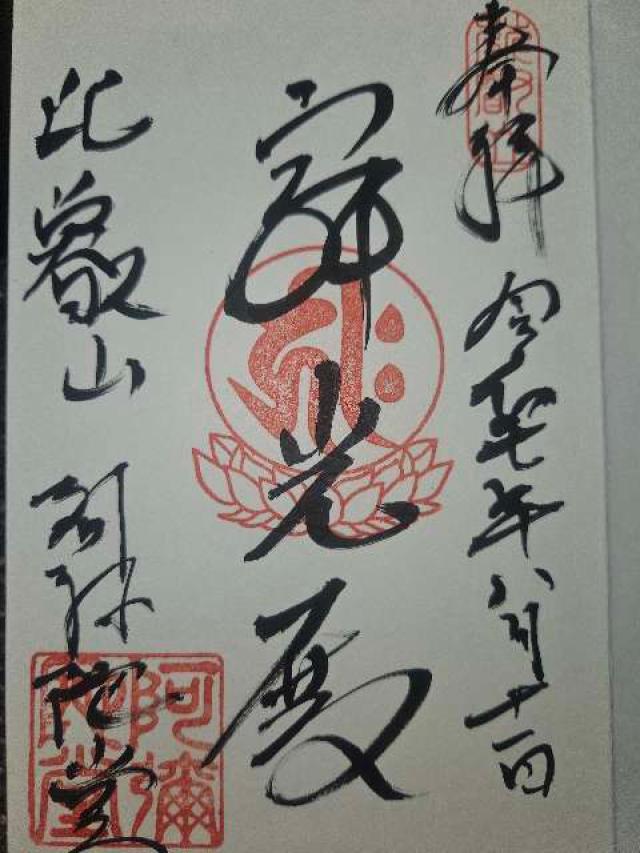 奉拝 令和七年八月十一日
寂光殿
比叡山 阿弥陀堂
阿彌陀堂